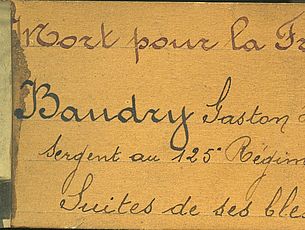 Mort pour la Fr
Baudry Gaston
Sergent au 125e Régim
Suites de ses bles